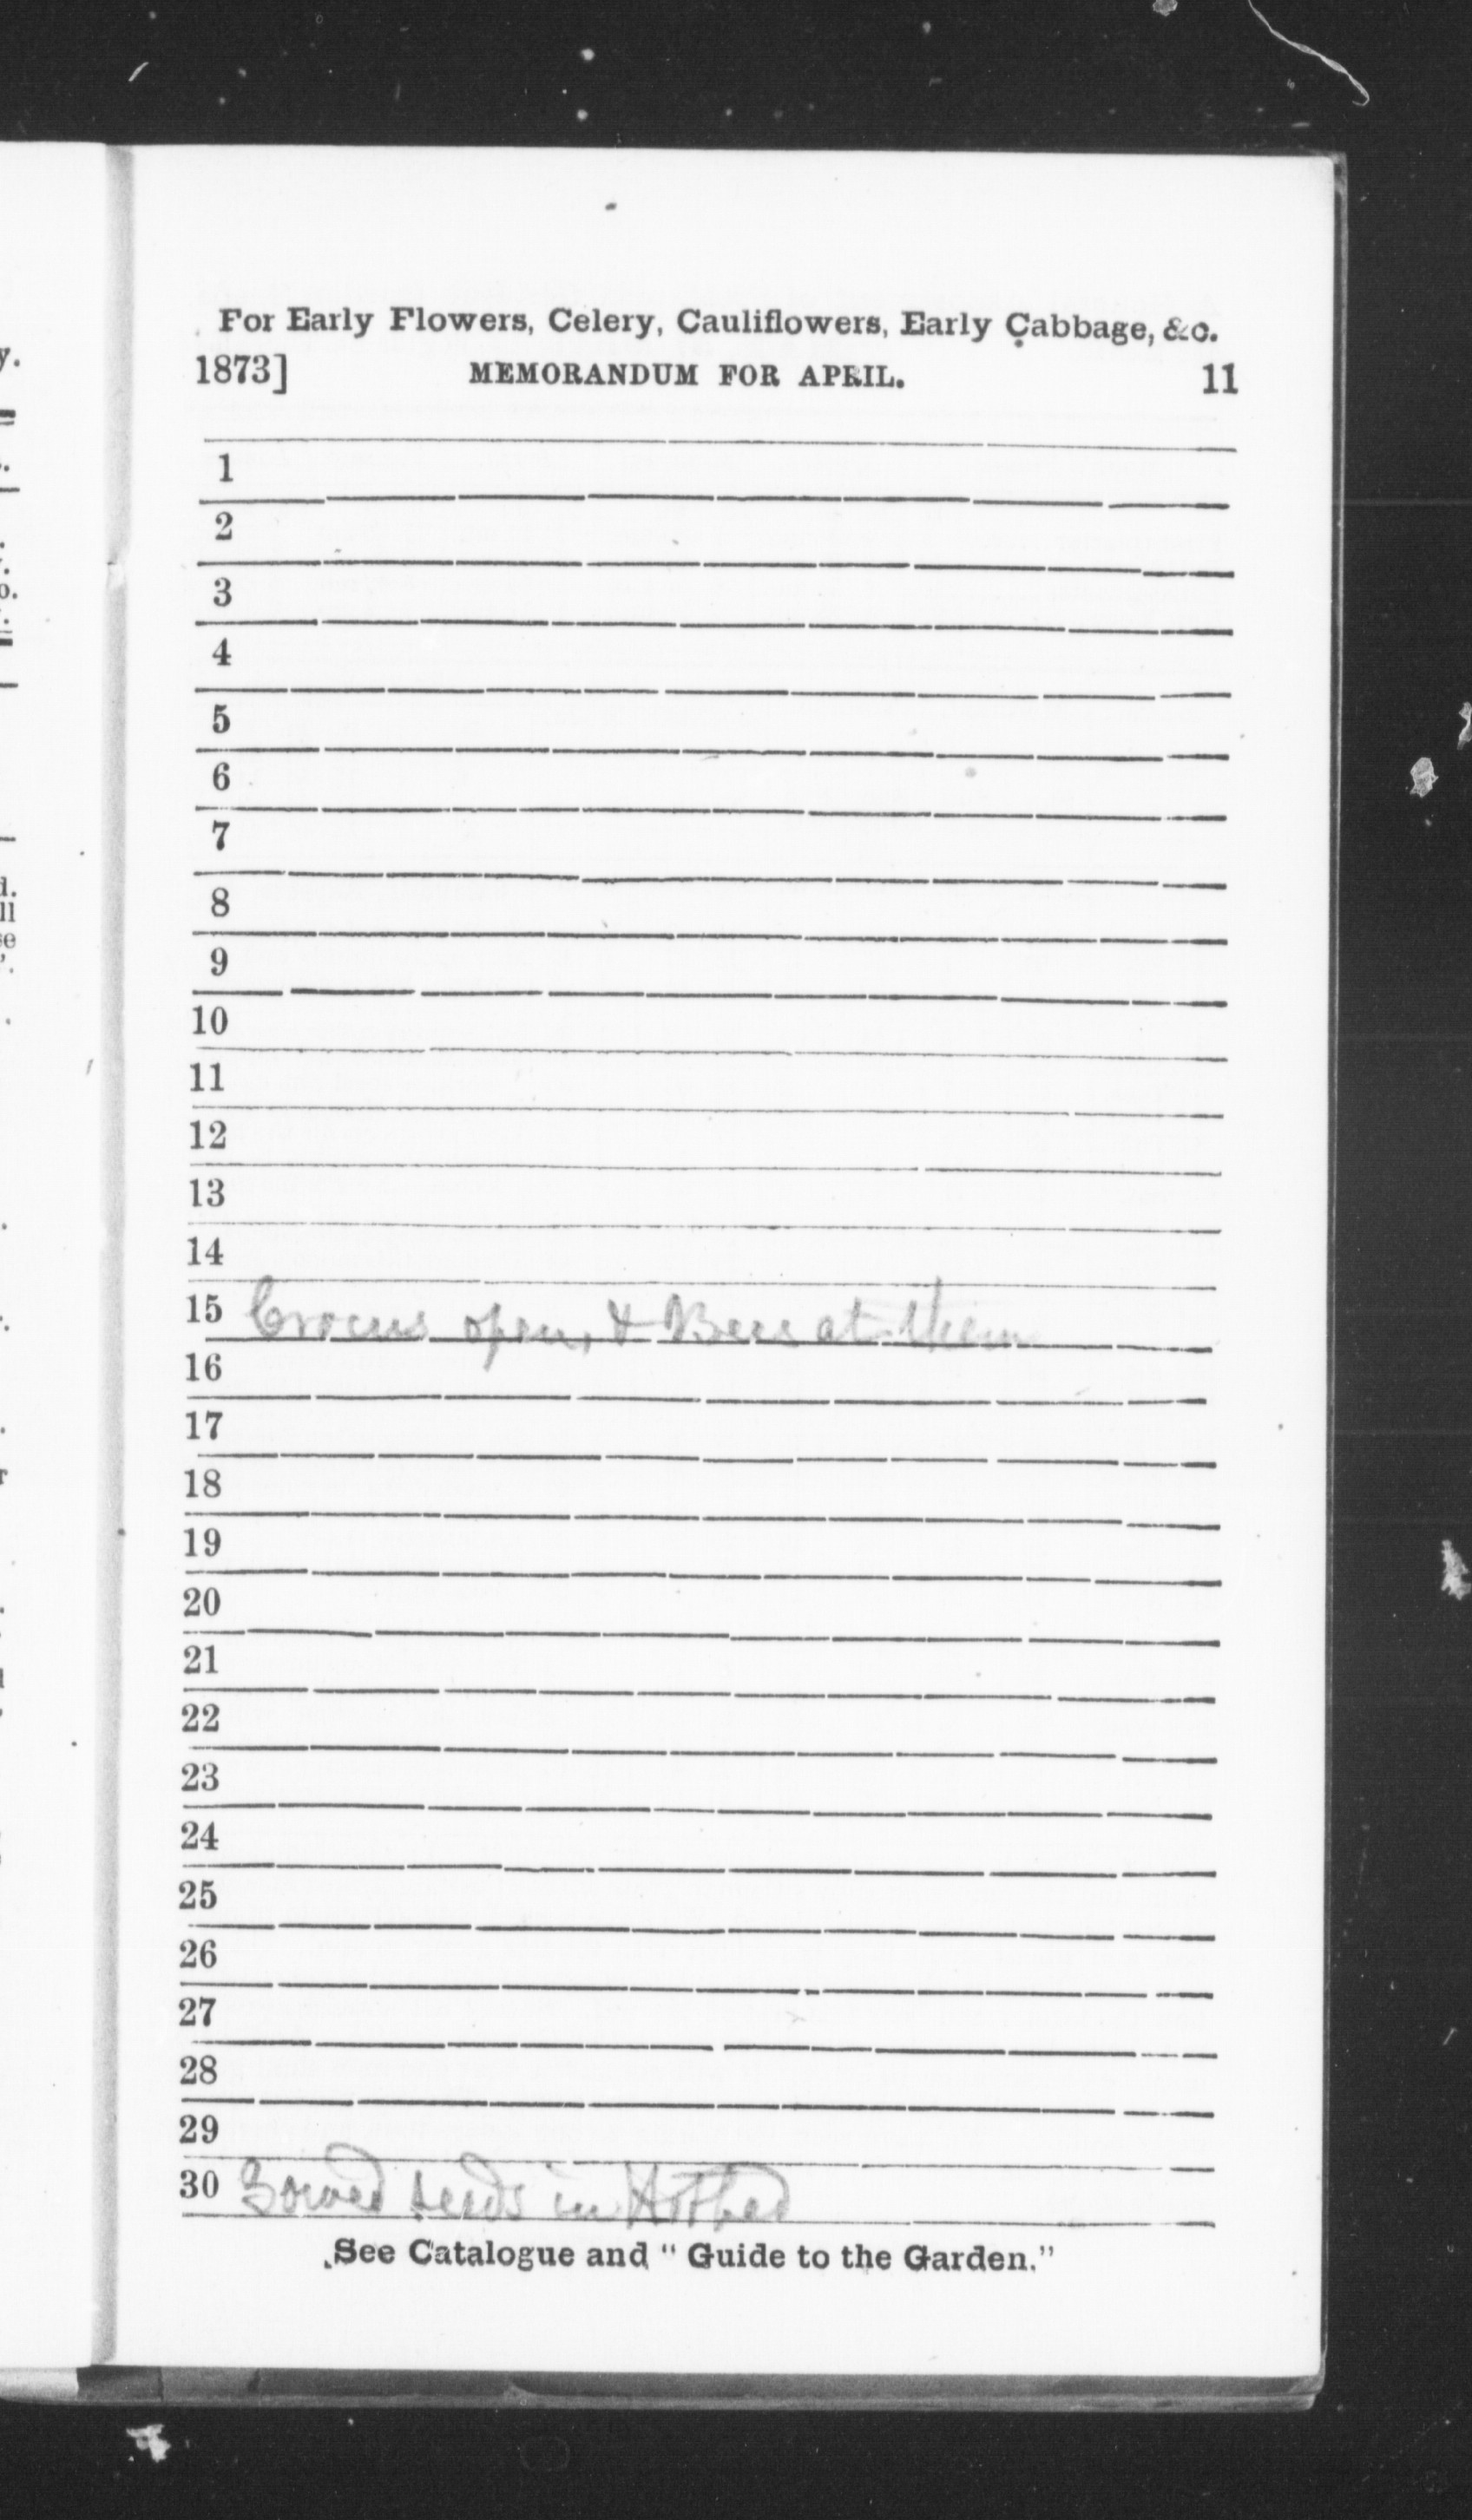 For Early Flowers, Celery, Cauliflowers, Early Cabbage, &c.
1873] MEMORANDUM FOR APRIL. 11
1
2
3
4
5
6
7
8
9
10
11
12
13
14
15 Crocus open, & Bees at them
16
17
18
19
20
21
22
23
24
25
26
27
28
29
30 Sowed seeds in Hotbed
See Catalogue and "Guide to the Garden."